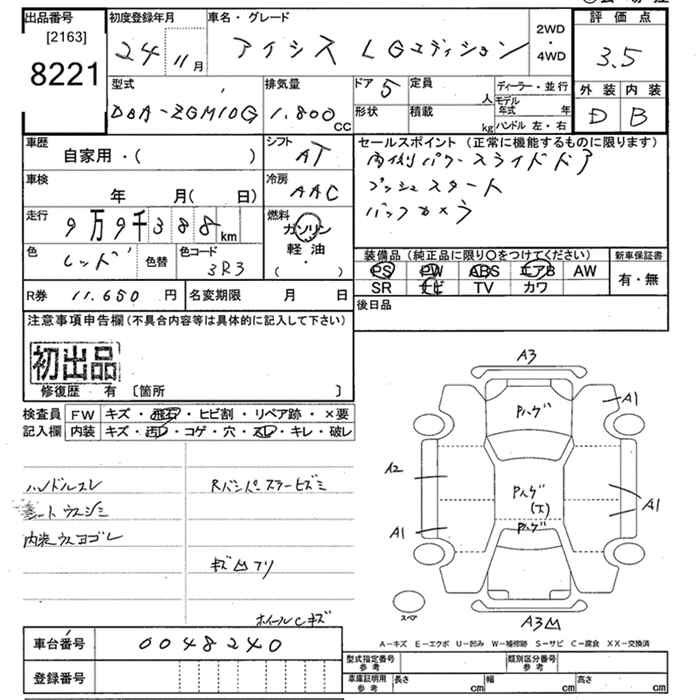 出品番号
[2163]
8221
初度登録年月
24 11月
車名・グレード
アイシス LGエディション
2WD
・
4WD
評価点
3.5
外装 内装
D B
型式
DBA-ZGM10G
排気量
1.800 cc
ドア 5
形状
定員 人
積載 kg
ディーラー・並行
モデル年式 年
ハンドル 左・右
車歴
自家用・( )
シフト
AT
車検
年 月( 日)
冷房
AAC
走行
9万9千388km
燃料
ガソリン
軽油
( )
色
レッド
色替
色コード
3R3
R券 11.650円
名変期限 月 日
セールスポイント (正常に機能するものに限ります)
両側パワースライドドア
プッシュスタート
バックカメラ
装備品 (純正品に限り○をつけてください)
PS PW ABS エアB AW
SR ナビ TV カワ
新車保証書
有・無
後日品
注意事項申告欄(不具合内容等は具体的に記入して下さい)
初出品
修復歴 有 〔箇所 〕
検査員記入欄
FW キズ・飛石・ヒビ割・リペア跡・×要
内装 キズ・汚レ・コゲ・穴・スレ・キレ・破レ
ハンドルスレ
シートウスジミ
内装ウスヨゴレ
Rバンパースラーヒズミ
キズ凹アリ
ホイールCキズ
A3
A1
Pハゲ
A2
Pハゲ
(エ)
A1
A1
Pハゲ
スペア
A3凹
A−キズ E−エクボ U−凹み W−補修跡 S−サビ C−腐食 XX−交換済
車台番号 0048240
登録番号
型式指定番号 参考
類別区分番号 参考
車庫証明用 参考
長さ cm
幅 cm
高さ cm